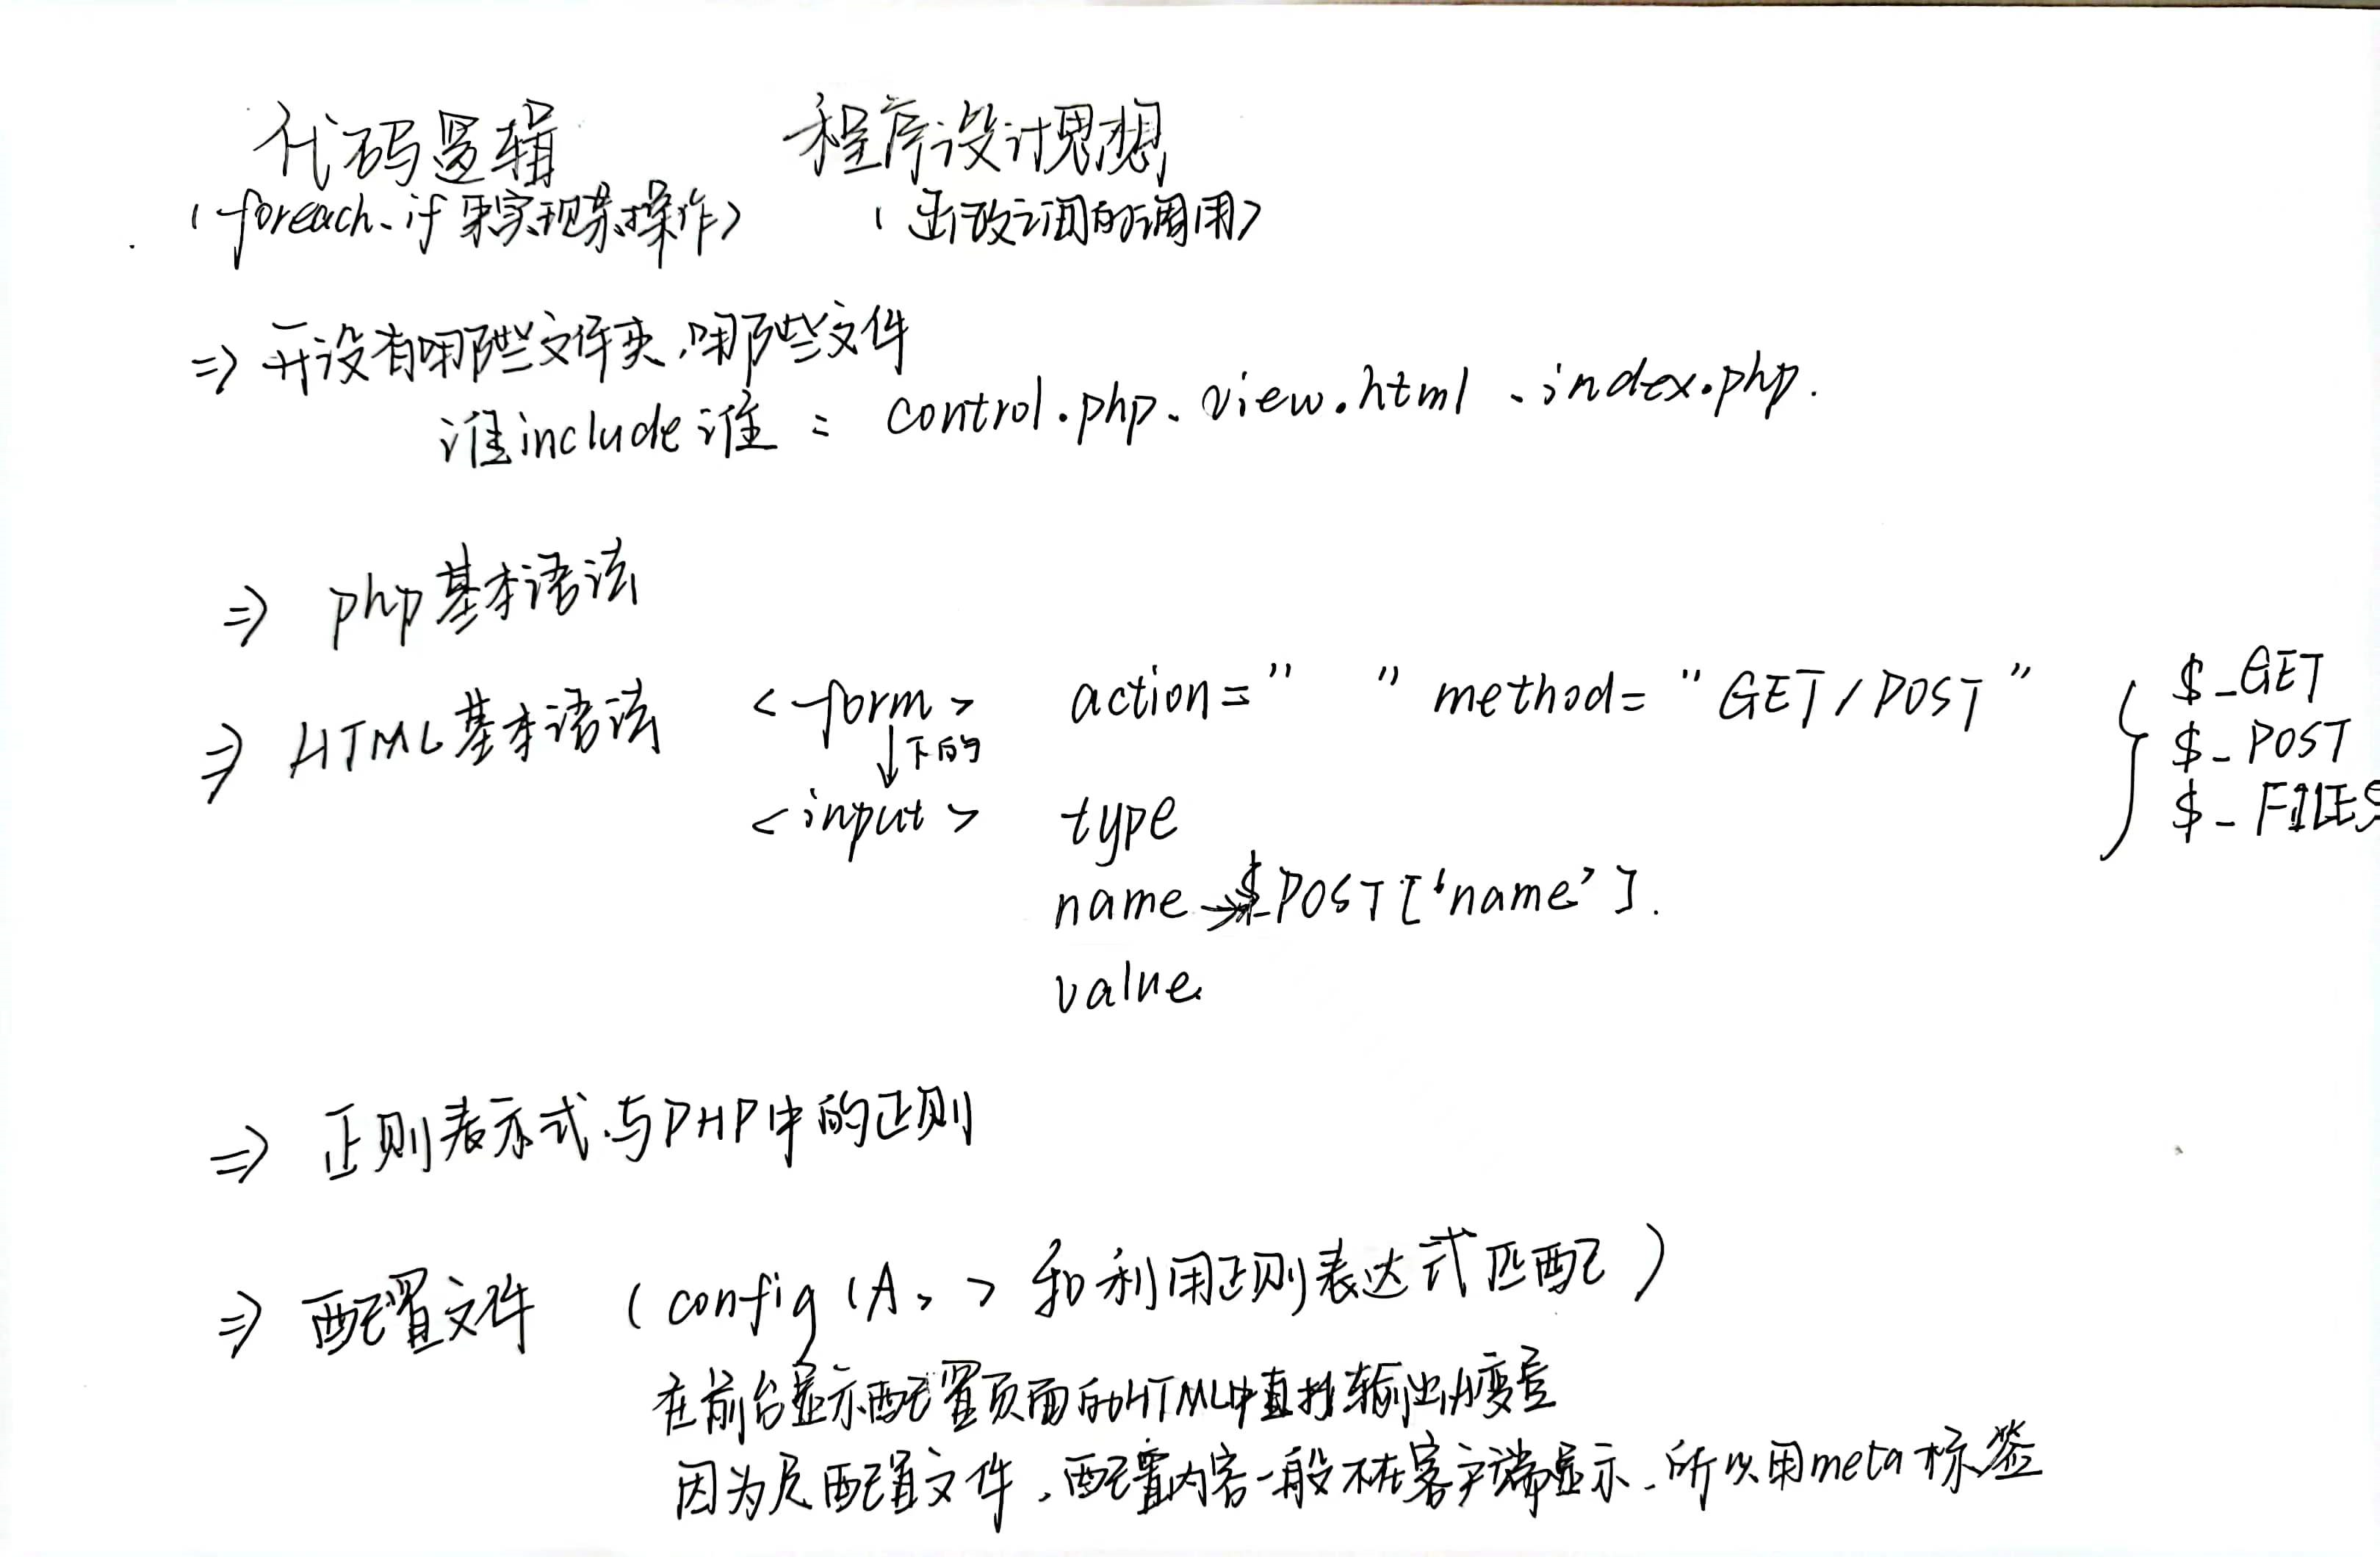 代码逻辑 程序设计思想
(foreach、if 来实现某操作) (函数之间的调用)
⇒ 开设有哪些文件夹,哪些文件
谁include谁 : control.php、view.html、index.php.
⇒ php基本语法
⇒ HTML基本语法 <form> action=" " method= "GET/POST" { $_GET
↓下的 $_POST
<input> type $_FILES
name→$_POST['name'].
value
⇒ 正则表示式与PHP中的正则
⇒ 配置文件 (config(A, ) 和利用正则表达式匹配)
在前台显示配置页面的HTML中直接输出变量
因为是配置文件,配置内容一般不在客户端显示、所以用meta标签